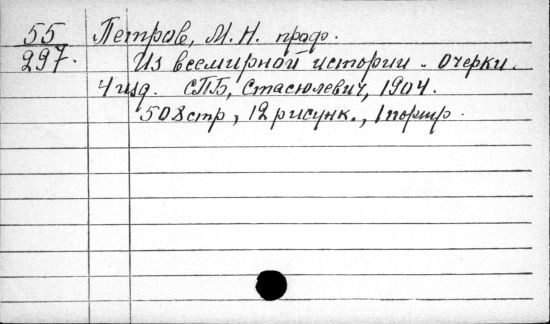 55 Петров, М. Н. проф.
297. Из всемирной истории. Очерки.
4 изд. СПБ, Стасюлевич, 1904.
508 стр, 12 рисунк., 1 портр.